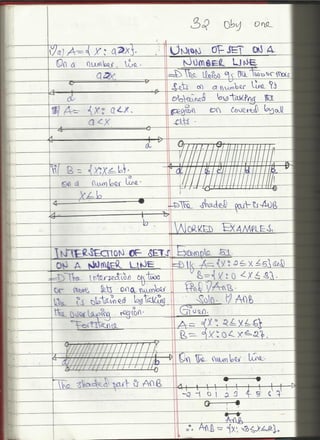 32 Oby one
A = { x : a > x }.
On a number line.
a > x
a
A = { x : a < x.
a < x
a
B = { x : x ≤ b }.
on a number line.
x ≤ b
b
INTERSECTION OF SETS
ON A NUMBER LINE
The intersection of two
or more sets on a number
line is obtained by taking
the overlaping region.
The shaded part is AnB
UNION OF SET ON A
NUMBER LINE
The Union of the two or more
sets on a number line is
obtained by taking
region covered by all
sets
The shaded part is AUB
WORKED EXAMPLES
Example 51
If A = { x : 2 ≤ x ≤ 5 } and
B = { x : 0 < x ≤
Find AnB
Soln.
Given.
A = { x : 2 ≤ x ≤ 5 }
B = { x : 0 < x ≤
On the number line.
-2 -1 0 1 2 3 4 5 6 7
AnB
∴ AnB = { x :